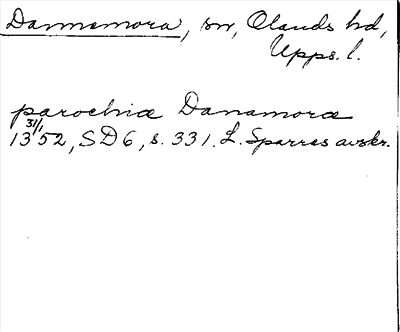 Dannemora, sn, Olands hd,
Upps. l.
parochiæ Danamoræ
31/1
1352, SD 6, s. 331. L. Sparres avskr.